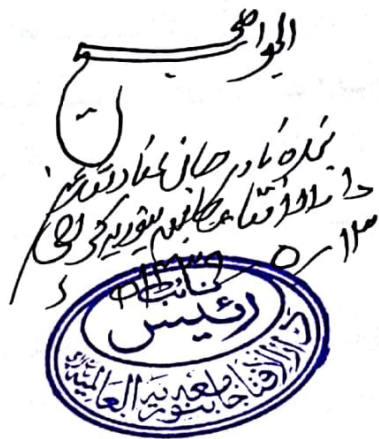 الجواب صحیح
بندہ نادر جان عفا اللہ عنہ
دارالافتاء جامعہ بنوریہ کراچی
نائب
رئیس
دارالافتاء جامعہ بنوریہ العالمیہ